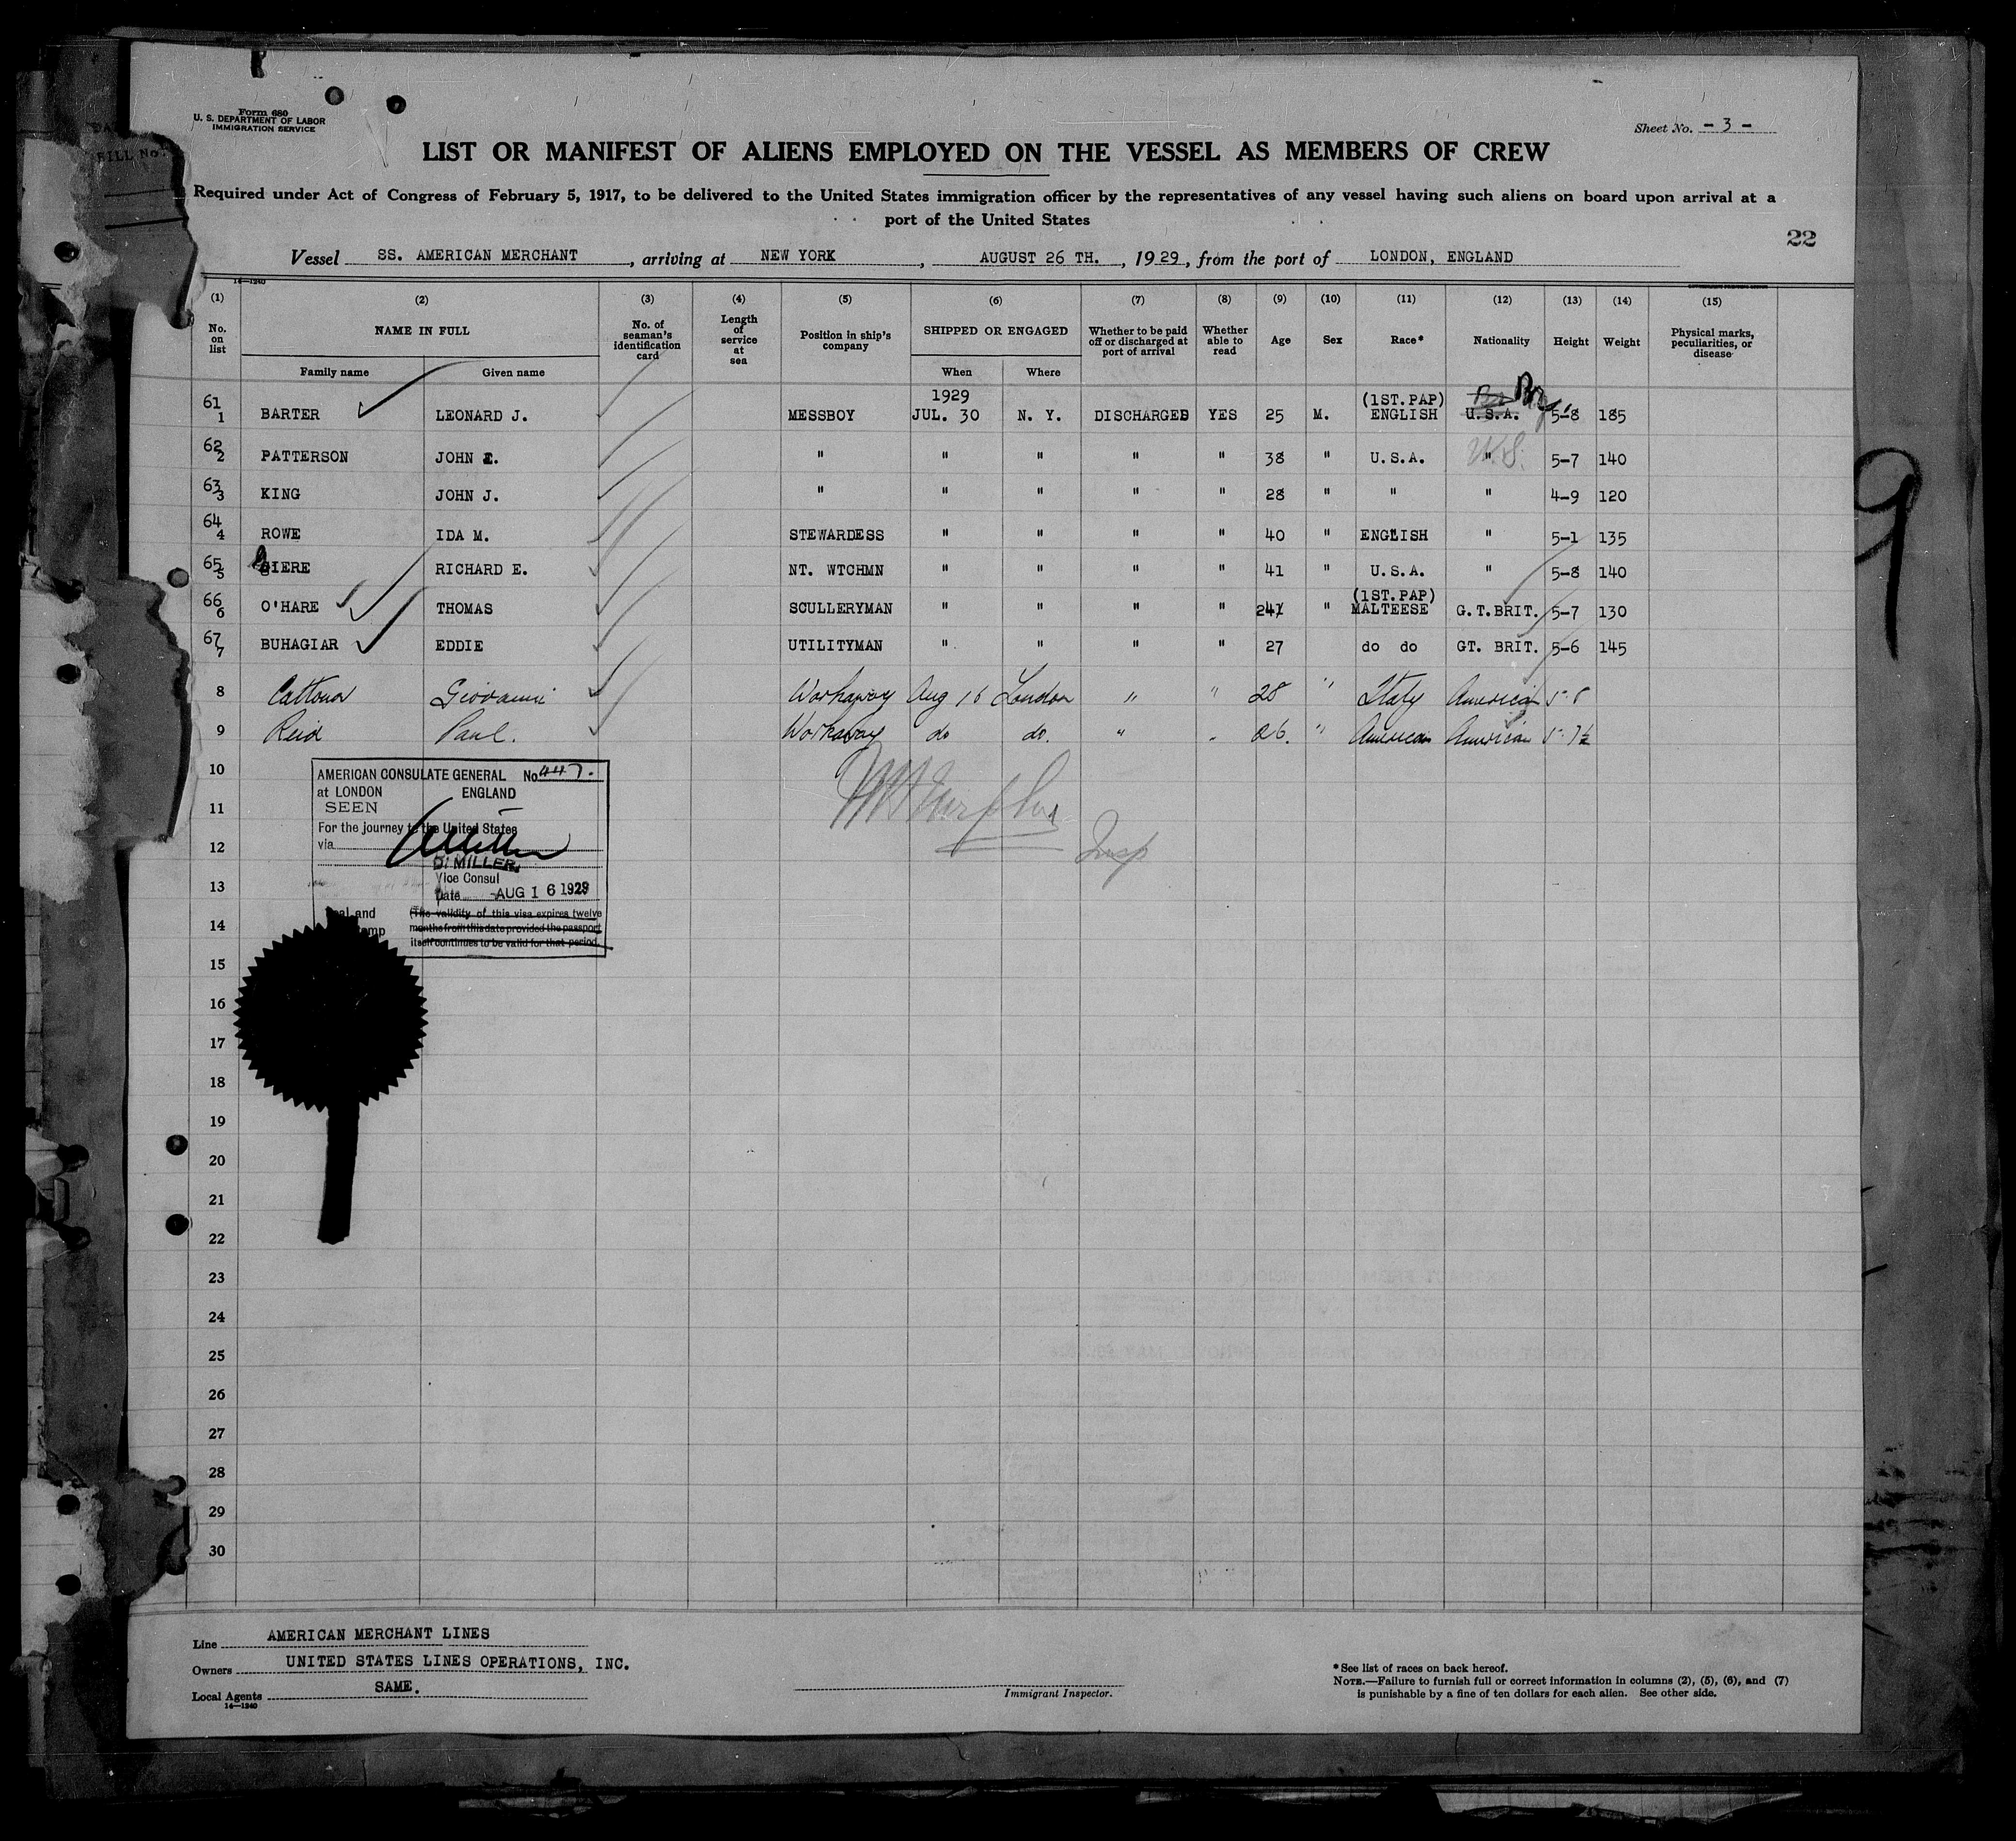 Form 680
U. S. DEPARTMENT OF LABOR
IMMIGRATION SERVICE
Sheet No. - 3 -
LIST OR MANIFEST OF ALIENS EMPLOYED ON THE VESSEL AS MEMBERS OF CREW
Required under Act of Congress of February 5, 1917, to be delivered to the United States immigration officer by the representatives of any vessel having such aliens on board upon arrival at a
port of the United States
22
Vessel SS. AMERICAN MERCHANT, arriving at NEW YORK, AUGUST 26 TH., 1929, from the port of LONDON, ENGLAND
14—1240
(1) (2) (3) (4) (5) (6) (7) (8) (9) (10) (11) (12) (13) (14) (15)
No. on list NAME IN FULL No. of seaman's identification card Length of service at sea Position in ship's company SHIPPED OR ENGAGED Whether to be paid off or discharged at port of arrival Whether able to read Age Sex Race* Nationality Height Weight Physical marks, peculiarities, or disease
Family name Given name When Where
1929 (1ST.PAP)
61 1 BARTER LEONARD J. MESSBOY JUL. 30 N. Y. DISCHARGED YES 25 M. ENGLISH U.S.A. 5-8 185
62 2 PATTERSON JOHN " " " " " 38 " U.S.A. " U.S. 5-7 140
63 3 KING JOHN J. " " " " " 28 " " " 4-9 120
64 4 ROWE IDA M. STEWARDESS " " " " 40 " ENGLISH " 5-1 135
65 5 RICHARD E. NT. WTCHMN " " " " 41 " U.S.A. " 5-8 140
(1ST.PAP)
66 6 O'HARE THOMAS SCULLERYMAN " " " " " MALTEESE G.T.BRIT. 5-7 130
67 7 BUHAGIAR EDDIE UTILITYMAN " " " " 27 do do GT. BRIT. 5-6 145
8 Giovanni Workaway Aug 16 London " " 28 " Italy American
9 Reid Paul. Workaway do do. " " 26. " American American 5-7½
10
11
12
13
14
15
16
17
18
19
20
21
22
23
24
25
26
27
28
29
30
AMERICAN CONSULATE GENERAL No 447.
at LONDON ENGLAND
SEEN
For the journey to the United States
via
D. MILLER,
Vice Consul
Date AUG 16 1929
Seal and
(The validity of this visa expires twelve
months from this date provided the passport
itself continues to be valid for that period.
Insp
Line AMERICAN MERCHANT LINES
Owners UNITED STATES LINES OPERATIONS, INC.
Local Agents SAME.
14—1240
Immigrant Inspector.
*See list of races on back hereof.
NOTE.—Failure to furnish full or correct information in columns (2), (5), (6), and (7)
is punishable by a fine of ten dollars for each alien. See other side.
9
BILL No.